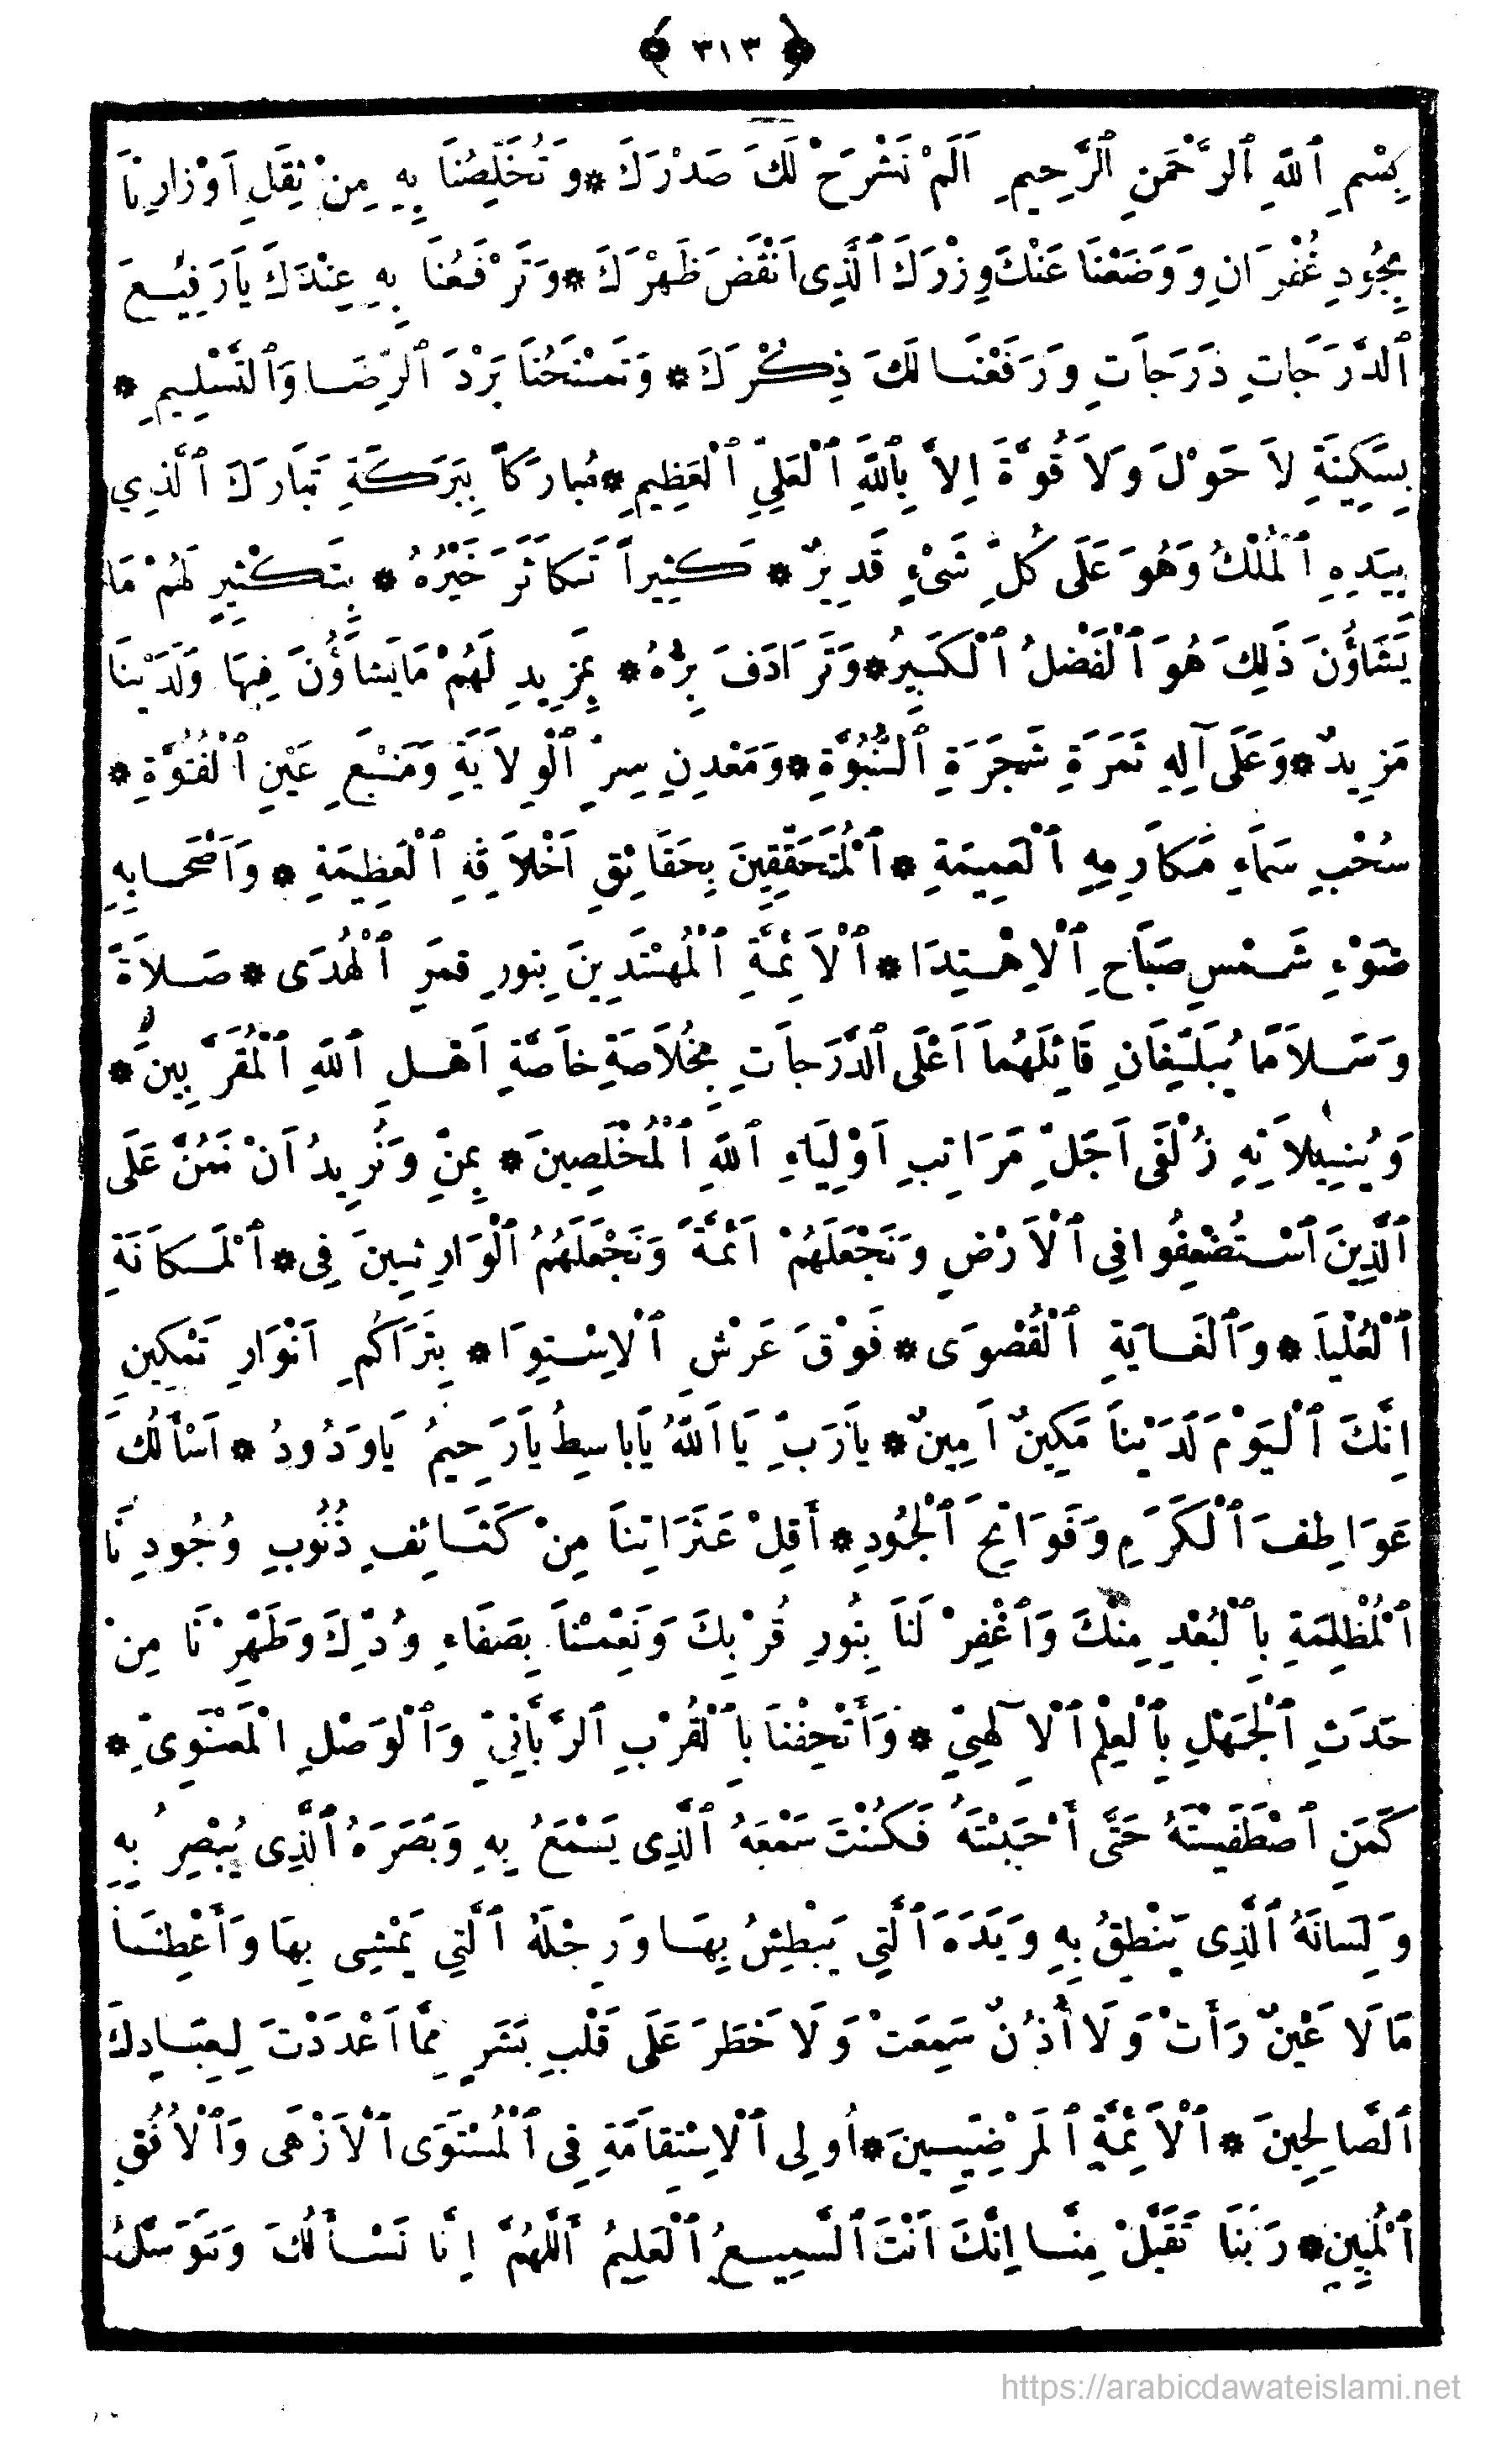 ﴿ ٣١٣ ﴾
بِسْمِ ٱللهِ ٱلرَّحْمَنِ ٱلرَّحِيمِ اَلَمْ نَشْرَحْ لَكَ صَدْرَكَ * وَتُخَلِّصُنَا بِهِ مِنْ ثِقَلِ اَوْزَارِنَا
بِجُودِ غُفْرَانِ وَوَضَعْنَا عَنْكَ وِزْرَكَ ٱلَّذِى اَنْقَضَ ظَهْرَكَ * وَتَرْفَعُنَا بِهِ عِنْدَكَ يَارَفِيعَ
ٱلدَّرَجَاتِ دَرَجَاتِ وَرَفَعْنَا لَكَ ذِكْرَكَ * وَتَمْنَحُنَا بَرْدَ ٱلرِّضَا وَٱلتَّسْلِيمِ *
بِسَكِينَةِ لاَ حَوْلَ وَلاَ قُوَّةَ اِلاَّ بِٱللهِ ٱلْعَلِيِّ ٱلْعَظِيمِ * مُبَارَكاً بِبَرَكَةِ تَبَارَكَ ٱلَّذِي
بِيَدِهِ ٱلْمُلْكُ وَهُوَ عَلَى كُلِّ شَىْءٍ قَدِيرٌ * كَثِيراً تَكَاثَرَ خَيْرُهُ * بِتَكْثِيرِ لَهُمْ مَا
يَشَاؤُنَ ذَلِكَ هُوَ ٱلْفَضْلُ ٱلْكَبِيرُ * وَتَرَادَفَ بِرُّهُ * بِمَزِيدِ لَهُمْ مَايَشَاؤُنَ فِيهَا وَلَدَيْنَا
مَزِيدٌ * وَعَلَى آلِهِ ثَمَرَةِ شَجَرَةِ ٱلنُّبُوَّةِ * وَمَعْدِنِ سِرِّ ٱلْوِلاَيَةِ وَمَنْبَعِ عَيْنِ ٱلْفُتُوَّةِ *
سُحْبِ سَمَاءِ مَكَارِمِهِ ٱلْعَمِيمَةِ * ٱلْمُتَحَقِّقِينَ بِحَقَائِقِ اَخْلاَقِهِ ٱلْعَظِيمَةِ * وَاَصْحَابِهِ
ضَوْءِ شَمْسِ صَبَاحِ ٱلْاِهْتِدَا * ٱلْاَئِمَّةِ ٱلْمُهْتَدِينَ بِنُورِ قمَرِ ٱلْهُدَى * صَلاَةً
وَسَلاَمًا يُبَلِّغَانِ قَائِلَهُمَا اَعْلَى ٱلدَّرَجَاتِ بِخُلاَصَةِ خَاصَّةِ اَهْلِ ٱللهِ ٱلْمُقَرَّبِينَ *
وَيُنِيلاَنِهِ زُلْفَى اَجَلِّ مَرَاتِبِ اَوْلِيَاءِ ٱللهِ ٱلْمُخْلَصِينَ * بِمِنِّ وَنُرِيدُ اَنْ نَمُنَّ عَلَى
ٱلَّذِينَ ٱسْتُضْعِفُوا فِى ٱلْاَرْضِ وَنَجْعَلَهُمْ اَئمَّةً وَنَجْعَلَهُمُ ٱلْوَارِثِينَ فِى * ٱلْمَكَانَةِ
ٱلْعُلْيَا * وَٱلْغَايَةِ ٱلْقُصْوَى * فَوْقَ عَرْشِ ٱلْاِسْتِوَا * بِتَرَاكُمِ اَنْوَارِ تَمْكِينِ
اِنَّكَ ٱلْيَوْمَ لَدَيْنَا مَكِينٌ اَمِينٌ * يَارَبِّ يَا اَللهُ يَابَاسِطُ يَارَحِيمُ يَاوَدُودُ * اَسْأَلُكَ
عَوَاطِفَ ٱلْكَرَمِ وَفَوَاتِحَ ٱلْجُودِ * أَقِلْ عَثَرَاتِنَا مِنْ كَثَائِفِ ذُنُوبِ وُجُودِنَا
ٱلْمُظْلِمَةِ بِٱلْبُعْدِ مِنْكَ وَٱغْفِرْ لَنَا بِنُورِ قُرْبِكَ وَنَعِّمْنَا بِصَفَاءِ وُدِّكَ وَطَهِّرْنَا مِنْ
حَدَثِ ٱلْجَهْلِ بِٱلْعِلْمِ ٱلْاِلَهِيِّ * وَأَتْحِفْنَا بِٱلْقُرْبِ ٱلرَّبَّانِيِّ وَٱلْوَصْلِ ٱلْمَعْنَوِىِّ *
كَمَنِ ٱصْطَفَيْتَهُ حَتَّى أَحْبَبْتَهُ فَكُنْتَ سَمْعَهُ ٱلَّذِى يَسْمَعُ بِهِ وَبَصَرَهُ ٱلَّذِى يُبْصِرُ بِهِ
وَلِسَانَهُ ٱلَّذِى يَنْطِقُ بِهِ وَيَدَهَ ٱلَّتِي يَبْطِشُ بِهَا وَرِجْلَهُ ٱلَّتِي يَمْشِى بِهَا وَأَعْطِنَا
مَا لَا عَيْنٌ رَأَتْ وَلَا أُذُنٌ سَمِعَتْ وَلَا خَطَرَ عَلَى قَلْبِ بَشَرٍ مِمَّا اَعْدَدْتَ لِعِبَادِكَ
ٱلصَّالِحِينَ * ٱلْاَئِمَّةِ ٱلمَرْضِيِّينَ * اُولِى ٱلْاِسْتِقَامَةِ فِى ٱلْمُسْتَوَى ٱلْاَزْهَى وَٱلْاُفُقِ
ٱلْمُبِينِ * رَبَنَا تَقَبَّلْ مِنَّا اِنَّكَ اَنْتَ ٱلسَّمِيعُ ٱلْعَلِيمُ اَللَّهُمَّ اِنَّا نَسْأَلُكَ وَنَتَوَسَّلُ
https://arabicdawateislami.net